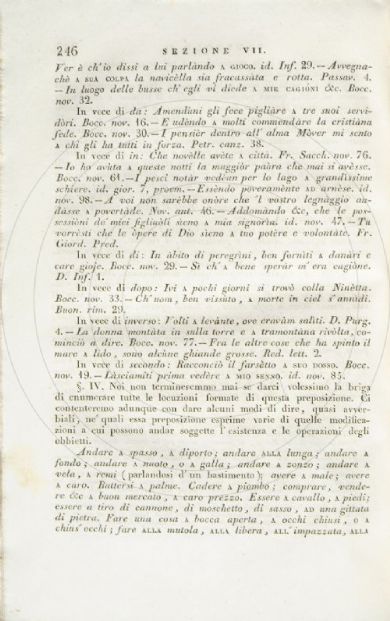 246 SEZIONE VII.
Ver è ch'io dissi a lui parlàndo A GIOCO. id. Inf. 29. — Avvegna-
chè A SUA COLPA la navicèlla sia fracassàta e rotta. Passav. 4.
— In luogo delle busse ch'egli vi diede A MIE CAGIÓNI &c. Bocc.
nov. 32.
In vece di da: Amendùni gli fece pigliàre A tre suoi servi-
dóri. Bocc. nov. 16. — E udèndo A molti commendàre la cristiàna
fede. Bocc. nov. 30. — I pensièr dentro all' alma Mòver mi sento
A chi gli ha tutti in forza. Petr. canz. 38.
In vece di in: Che novèlle avète A città. Fr. Sacch. nov. 76.
— Io ho avùta A queste notti la maggiór paùra che mai si avèsse.
Bocc. nov. 61. — I pesci notàr vedèan per lo lago A grandìssime
schiere. id. gior. 7, proem. — Essèndo poveramènte AD arnèse. id.
nov. 98. — A voi non sarèbbe onòre che 'l vostro legnàggio an-
dàsse A povertàde. Nov. ant. 46. — Addomàndo &c, che le pos-
sessióni de' miei figliuòli sieno A mia signorìa. id. nov. 47. — Tu
vorrèsti che le òpere di Dio sieno A tuo potère e volontàte. Fr.
Giord. Pred.
In vece di di: In àbito di peregrìni, ben forniti A danàri e
care gioje. Bocc. nov. 29. — Sì ch' A bene speràr m' era cagióne.
D. Inf. 1.
In vece di dopo: Ivi A pochi giorni si trovò colla Ninètta.
Bocc. nov. 33. — Ch' uom, ben vissùto, A morte in ciel s' annidi.
Buon. rim. 29.
In vece di inverso: Volti A levànte, ove eravàm salìti. D. Purg.
4. — La donna montàta in sulla torre e A tramontàna rivòlta, co-
minciò a dire. Bocc. nov. 77. — Fra le altre cose che ha spinto il
mare A lido, sono alcùne ghiande grosse. Red. lett. 2.
In vece di secondo: Racconciò il farsètto A SUO DOSSO. Bocc.
nov. 19. — Làsciamiti prima vedère A MIO SENNO. id. nov. 85.
§. IV. Noi non termineremmo mai se darci volessimo la briga
di enumerare tutte le locuzioni formate di questa preposizione. Ci
contenteremo adunque con dare alcuni modi di dire, quasi avver-
biali, ne' quali essa preposizione esprime varie di quelle modifica-
zioni a cui possono andar soggette l' esistenza e le operazioni degli
obbietti.
Andare A spasso, A diporto; andare ALLA lunga; andare A
fondo; andare A nuoto, o A galla; andare A zonzo; andare A
vela, A remi (parlandosi d' un bastimento); avere A male; avere
A caro. Battersi A palme. Cadere A piombo; comprare, vende-
re &c A buon mercato, A caro prezzo. Essere A cavallo, A piedi;
essere A tiro di cannone, di moschetto, di sasso, AD una gittata
di pietra. Fare una cosa A bocca aperta, A occhi chiusi, o A
chius' occhi; fare ALLA mutola, ALLA libera, ALL' impazzata, ALLA